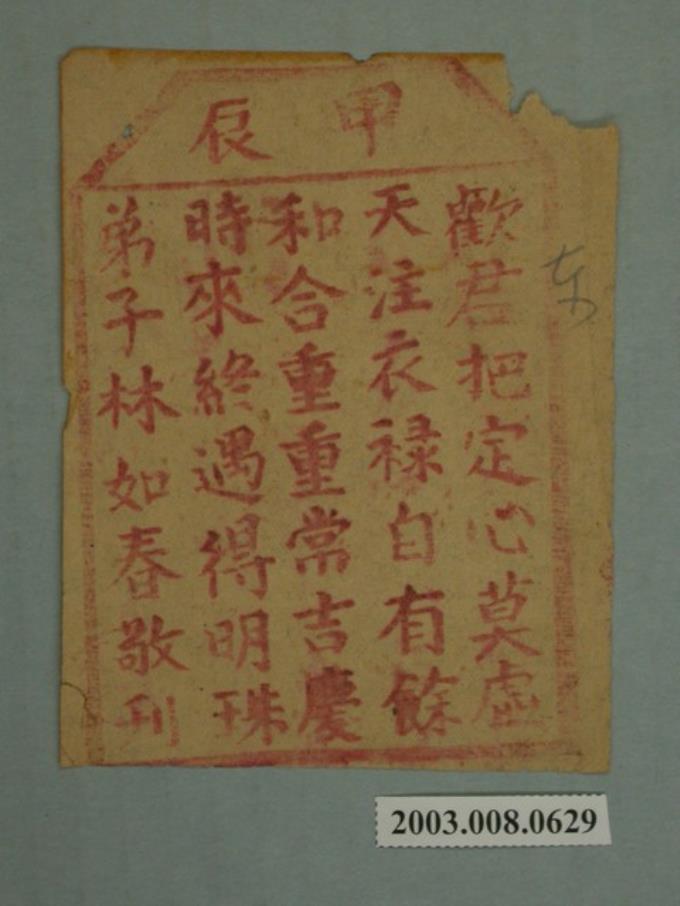 甲辰
歡君把定心莫虛
天注衣禄自有餘
和合重重常吉慶
時來終遇得明珠
弟子林如春敬刊
2003.008.0629